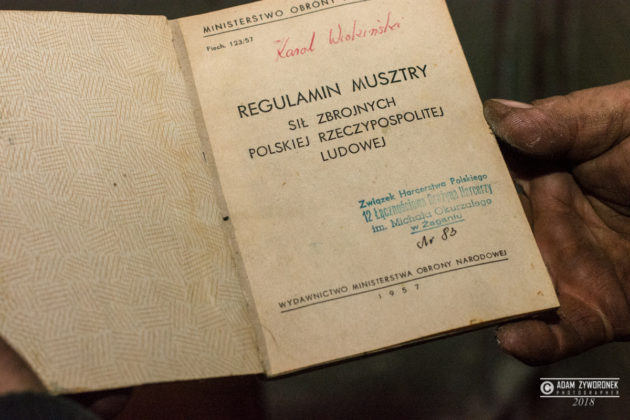 MINISTERSTWO OBRONY
Piech. 123/57
Karol
REGULAMIN MUSZTRY
SIŁ ZBROJNYCH
POLSKIEJ RZECZYPOSPOLITEJ
LUDOWEJ
Związek Harcerstwa Polskiego
12 Łącznościowa Drużyna Harcerzy
im. Michała Okurzałego
w Żaganiu
Nr 83
WYDAWNICTWO MINISTERSTWA OBRONY NARODOWEJ
1957
© ADAM ZYWORONEK
PHOTOGRAPHER
2018